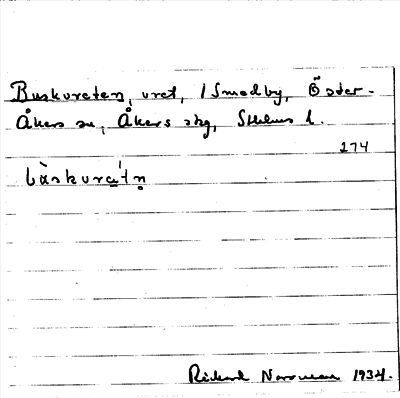 Buskvreten, vret, /Smedby, Öster-
Åkers sn, Åkers skg, Sthlms l.
274
bàskvrätṇ
Rickard Norrman 1934.